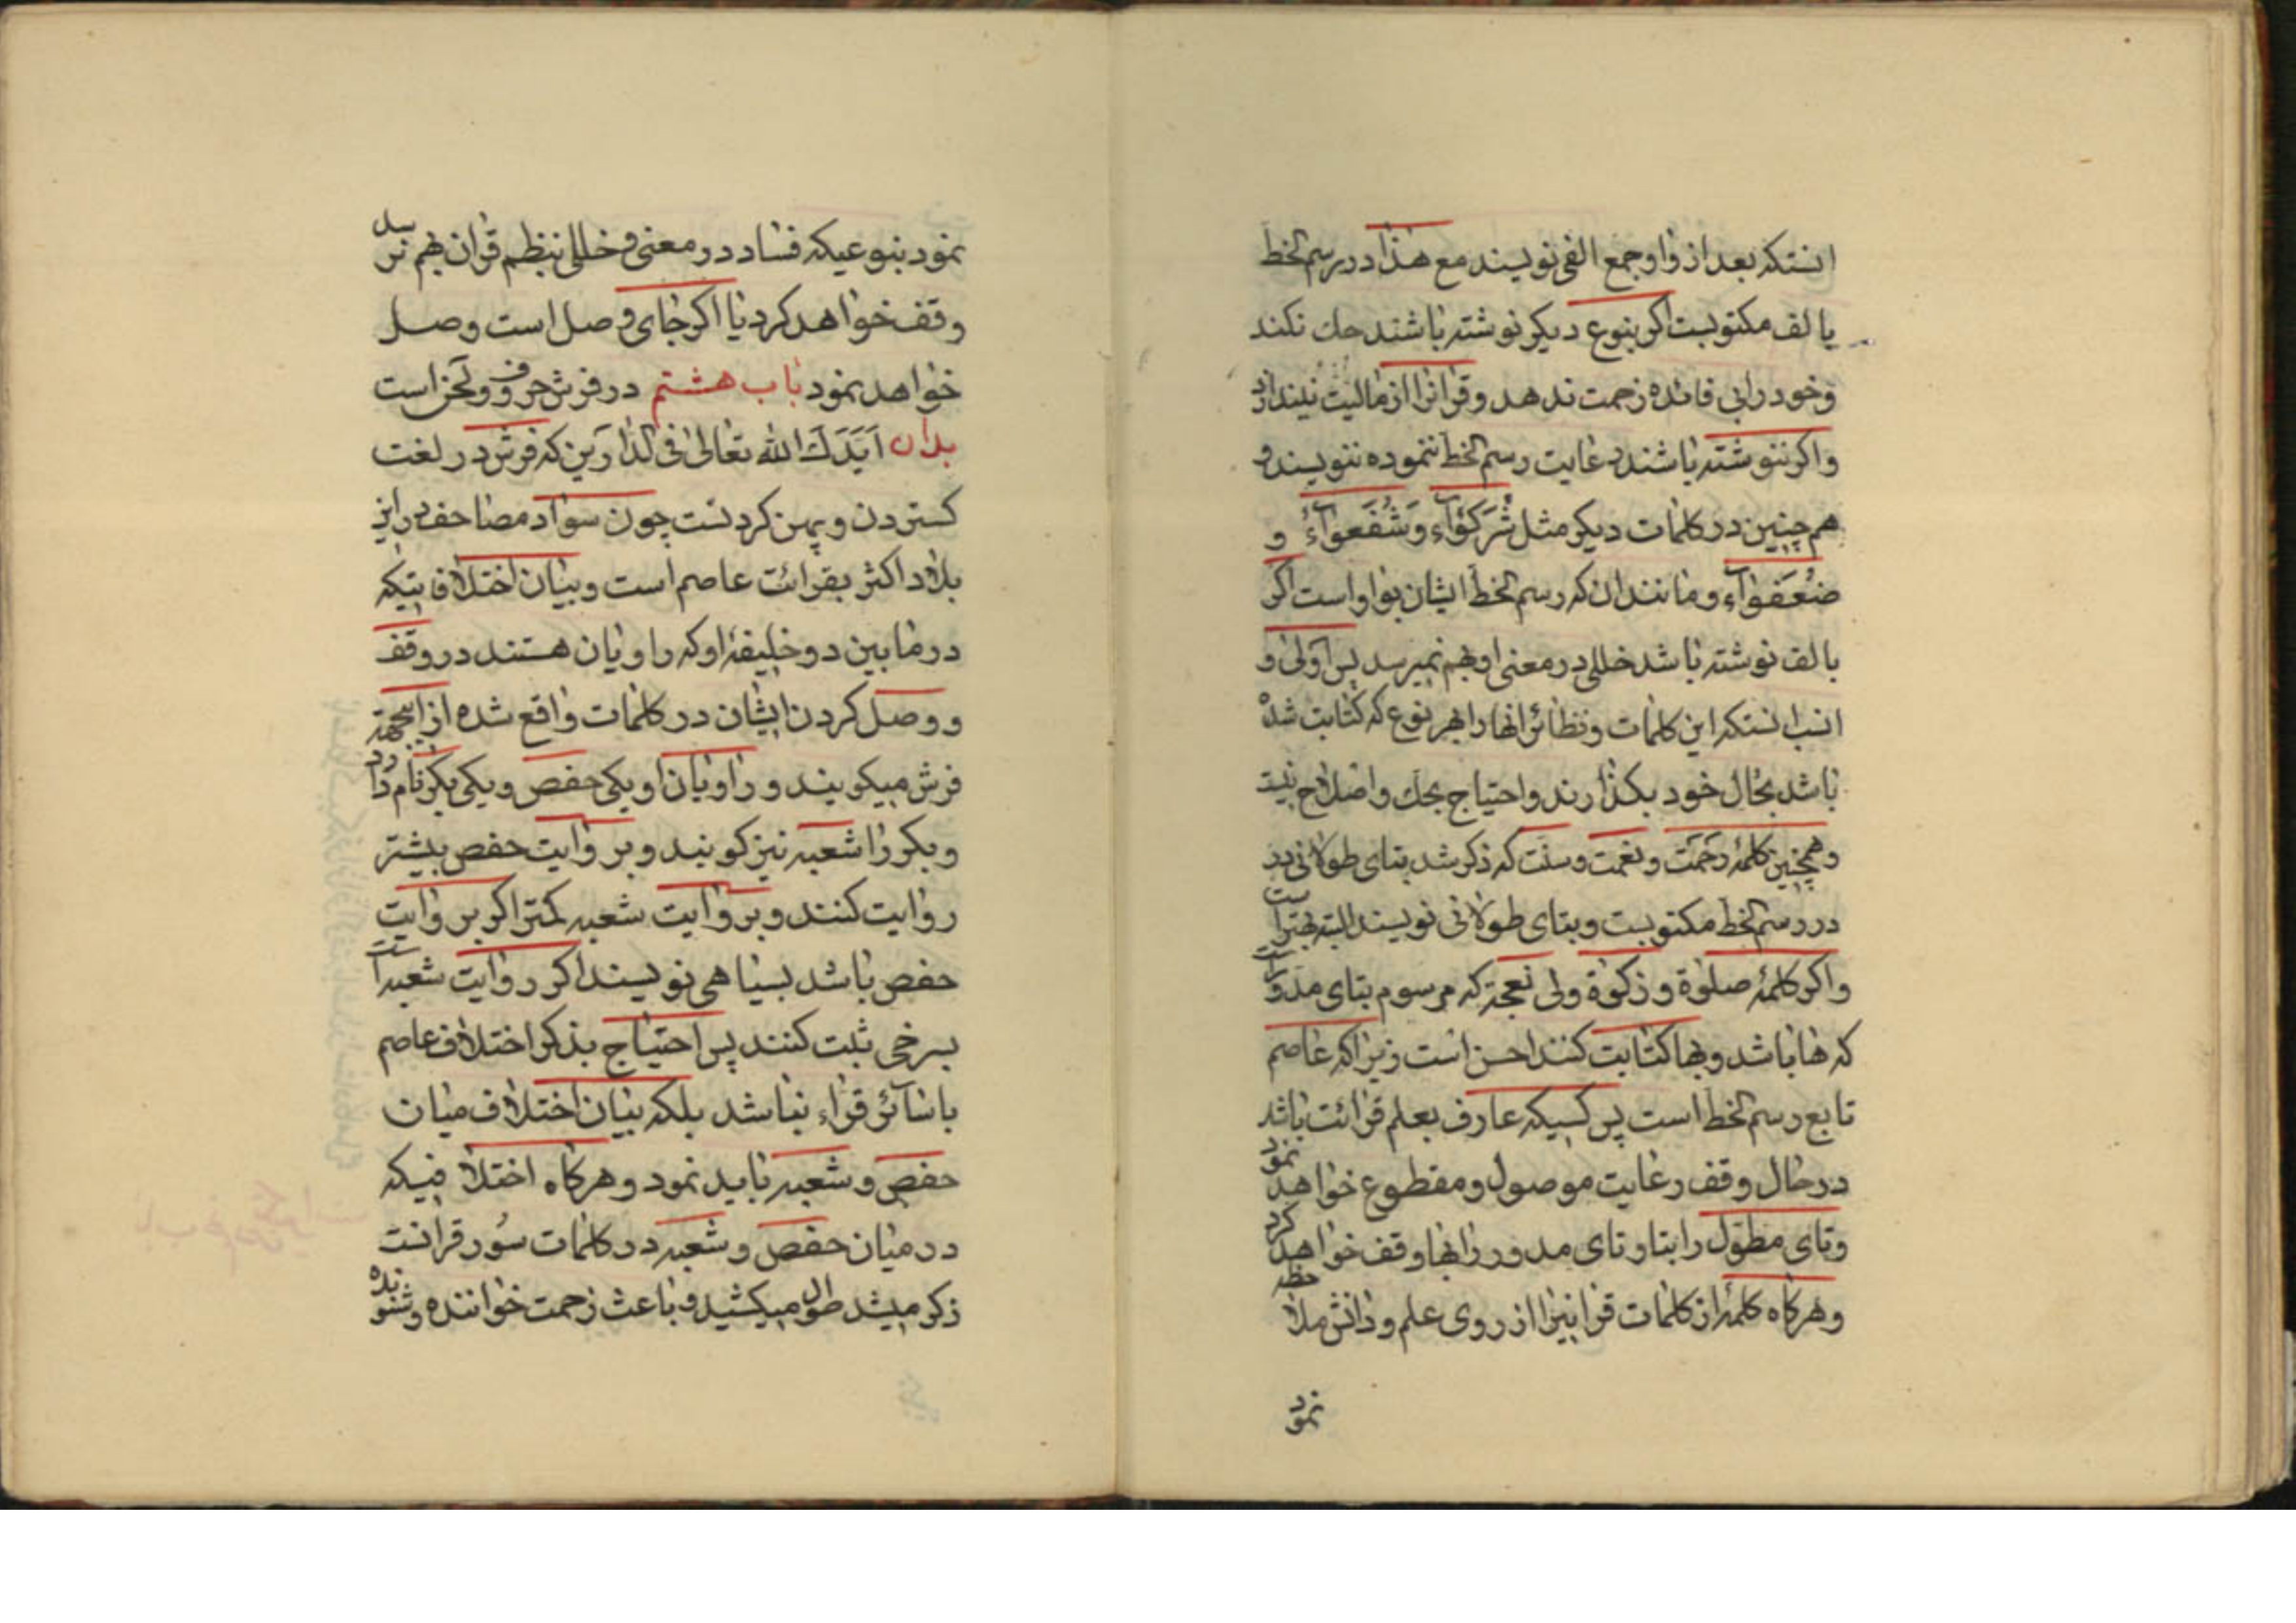 انستکه بعد از واو جمع الفی نویسند مع هذا در رسم الخط
یا لف مکتوبست اکر بنوع دیکر نوشته باشند حك نکند
و خود را بی فائده زحمت ندهد و قرانرا از مالیت نیندازد
و اکر ننوشته باشند رعایت رسم الخط ننموده ننویسند و
هم چنین در کلمات دیکر مثل شُرَکٰۤؤُاء و شُفَعٰۤواءُ و
ضُعَفٰۤواء و مانند ان که رسم الخط ایشان بواو است اکر
بالف نوشته باشد خللی در معنی او بهم نمیرسد پس اولی و
انسب انستکه این کلمات و نظائر انها را بهر نوع که کتابت شده
باشد بحال خود بکذارند و احتیاج بحك و اصلاح نیست
و همچنین کلمهٔ رَحْمَت و نعمت و سنت که ذکر شد بتای طولانی
در رسم الخط مکتوبست و بتای طولانی نویسند البته بهتر است
و اکر کلمهٔ صلوة و زکوة ولی نعجة که مرسوم بتای مدور است
که ها باشد و بها کتابت کنند احسن است زیرا که عاصم
تابع رسم الخط است پس کسیکه عارف بعلم قرائت باشد
در حال وقف رعایت موصول و مقطوع خواهد نمود
و تای مطوّل را بتا و تای مدور را بها وقف خواهد کرد
و هرکاه کلمهٔ از کلمات قرانیرا از روی علم و دانش ملاحظه
نمود
نمود بنوعیکه فساد در معنی و خللی بنظم قران بهم نرسد
وقف خواهد کرد یا اکر جای وصل است وصل
خواهد نمود باب هشتم در فرش حروف و لحن است
بدان اَیَّدَكَ الله تعالی فی الدارین که فرش در لغت
کستردن و پهن کردنست چون سواد مصاحف در این
بلاد اکثر بقرائت عاصم است و بیان اختلافاتیکه
در مابین دو خلیفهٔ او که راویان هستند در وقف
و وصل کردن ایشان در کلمات واقع شده از اینجهة
فرش میکویند و راویان او یکی حفص و یکی بکر نام دارد
و بکر را شعبه نیز کویند و بر وایت حفص بیشتر
روایت کنند و بر وایت شعبه کمتر اکر بر وایت
حفص باشد بسیاهی نویسند اکر روایت شعبه است
بسرخی ثبت کنند پس احتیاج بذکر اختلاف عاصم
با سآئر قراء نباشد بلکه بیان اختلاف میان
حفص و شعبه باید نمود و هرکاه اختلافیکه
در میان حفص و شعبه در کلمات سُوَر قرانست
ذکر میشد طول میکشید و باعث زحمت خواننده و شنونده